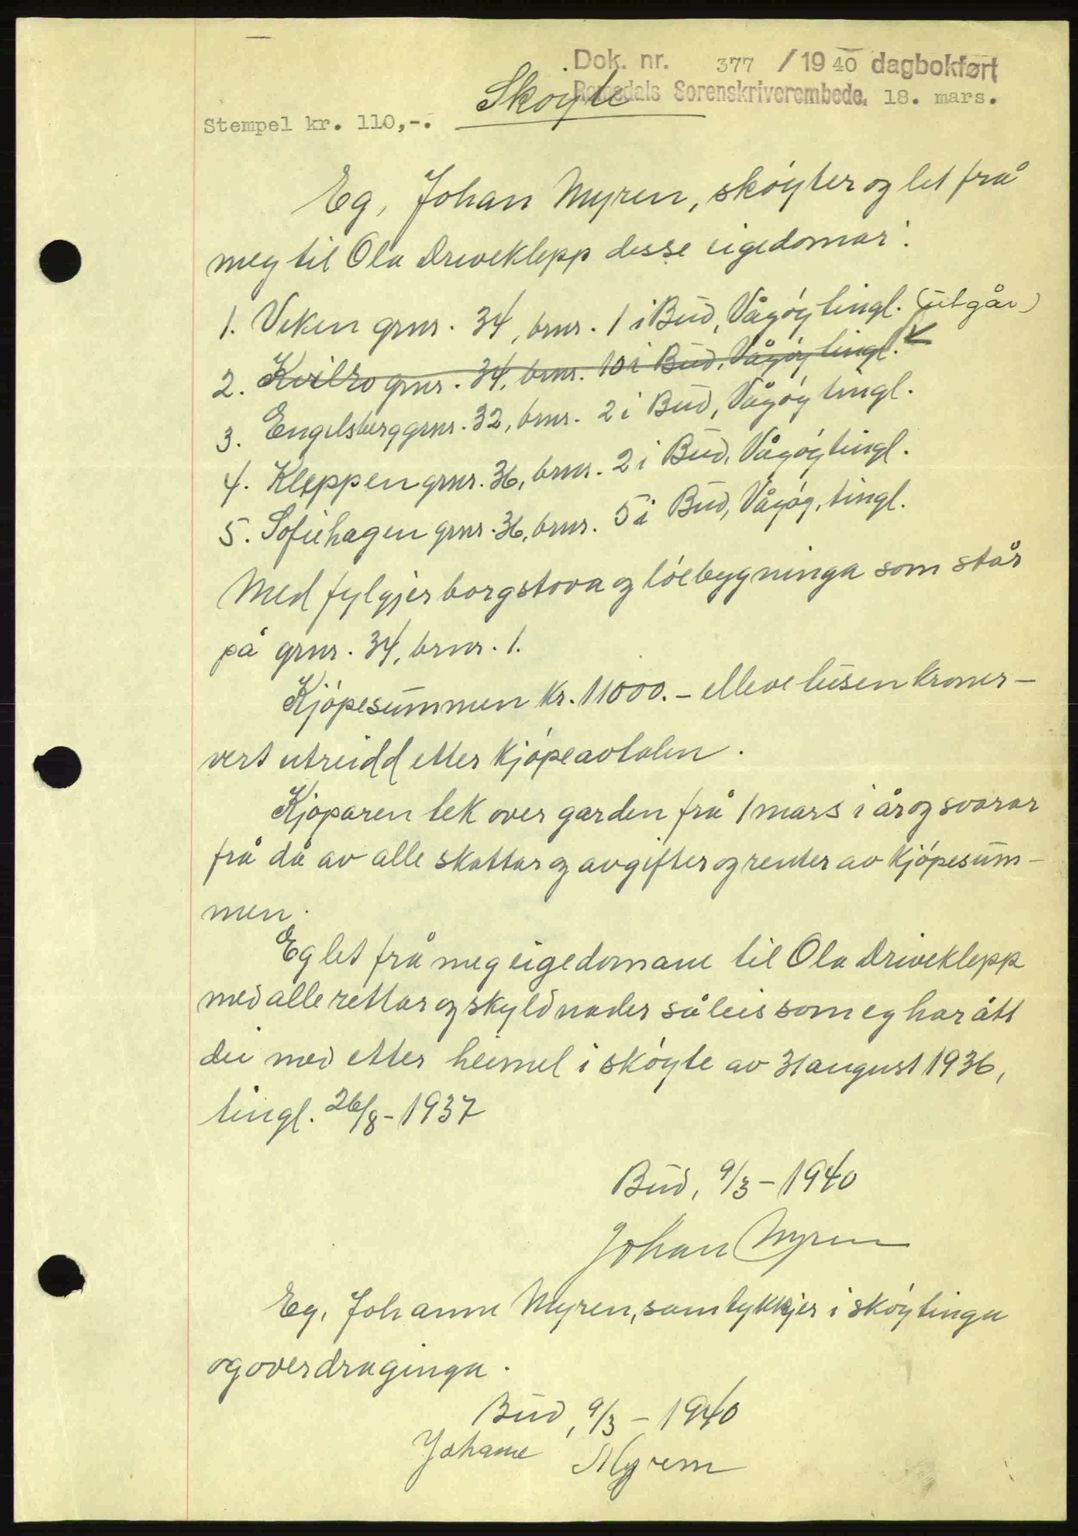 Dok. nr. 377 / 1940 dagbokført
Romsdals Sorenskriverembede. 18. mars.
Skøyte
Stempel kr. 110,-.
Eg, Johan Myren, skøyter og let frå
meg til Ola Driveklepp desse eigedomar:
1. Viken grnr. 34, brnr. 1 i Bud, Vågøy tingl. (utgår)
2. Kvilro grnr. 34, brnr. 10 i Bud, Vågøy tingl.
3. Engelsberg grnr. 32, brnr. 2 i Bud, Vågøy tingl.
4. Kleppen grnr. 36, brnr. 2 i Bud, Vågøy tingl.
5. Sofiehagen grnr. 36, brnr. 5 i Bud, Vågøy, tingl.
Med fylgjer borgstova og løebygninga som står
på grnr. 34, brnr. 1.
Kjøpesummen kr. 11000.- elleve tusen kroner-
vert utreidd etter kjøpeavtalen.
Kjøparen tek over garden frå 1 mars i år og svarar
frå då av alle skattar og avgifter og renter av kjøpesum-
men.
Eg let frå meg eigedomane til Ola Driveklepp
med alle rettar og skyldnader såleis som eg har ått
dei med etter heimel i skøyte av 31 august 1936,
tingl. 26/8-1937
Bud, 9/3-1940
Johan Myren
Eg, Johanne Myren, samtykkjer i skøytinga
og overdraginga.
Bud, 9/3-1940
Johanne Myren